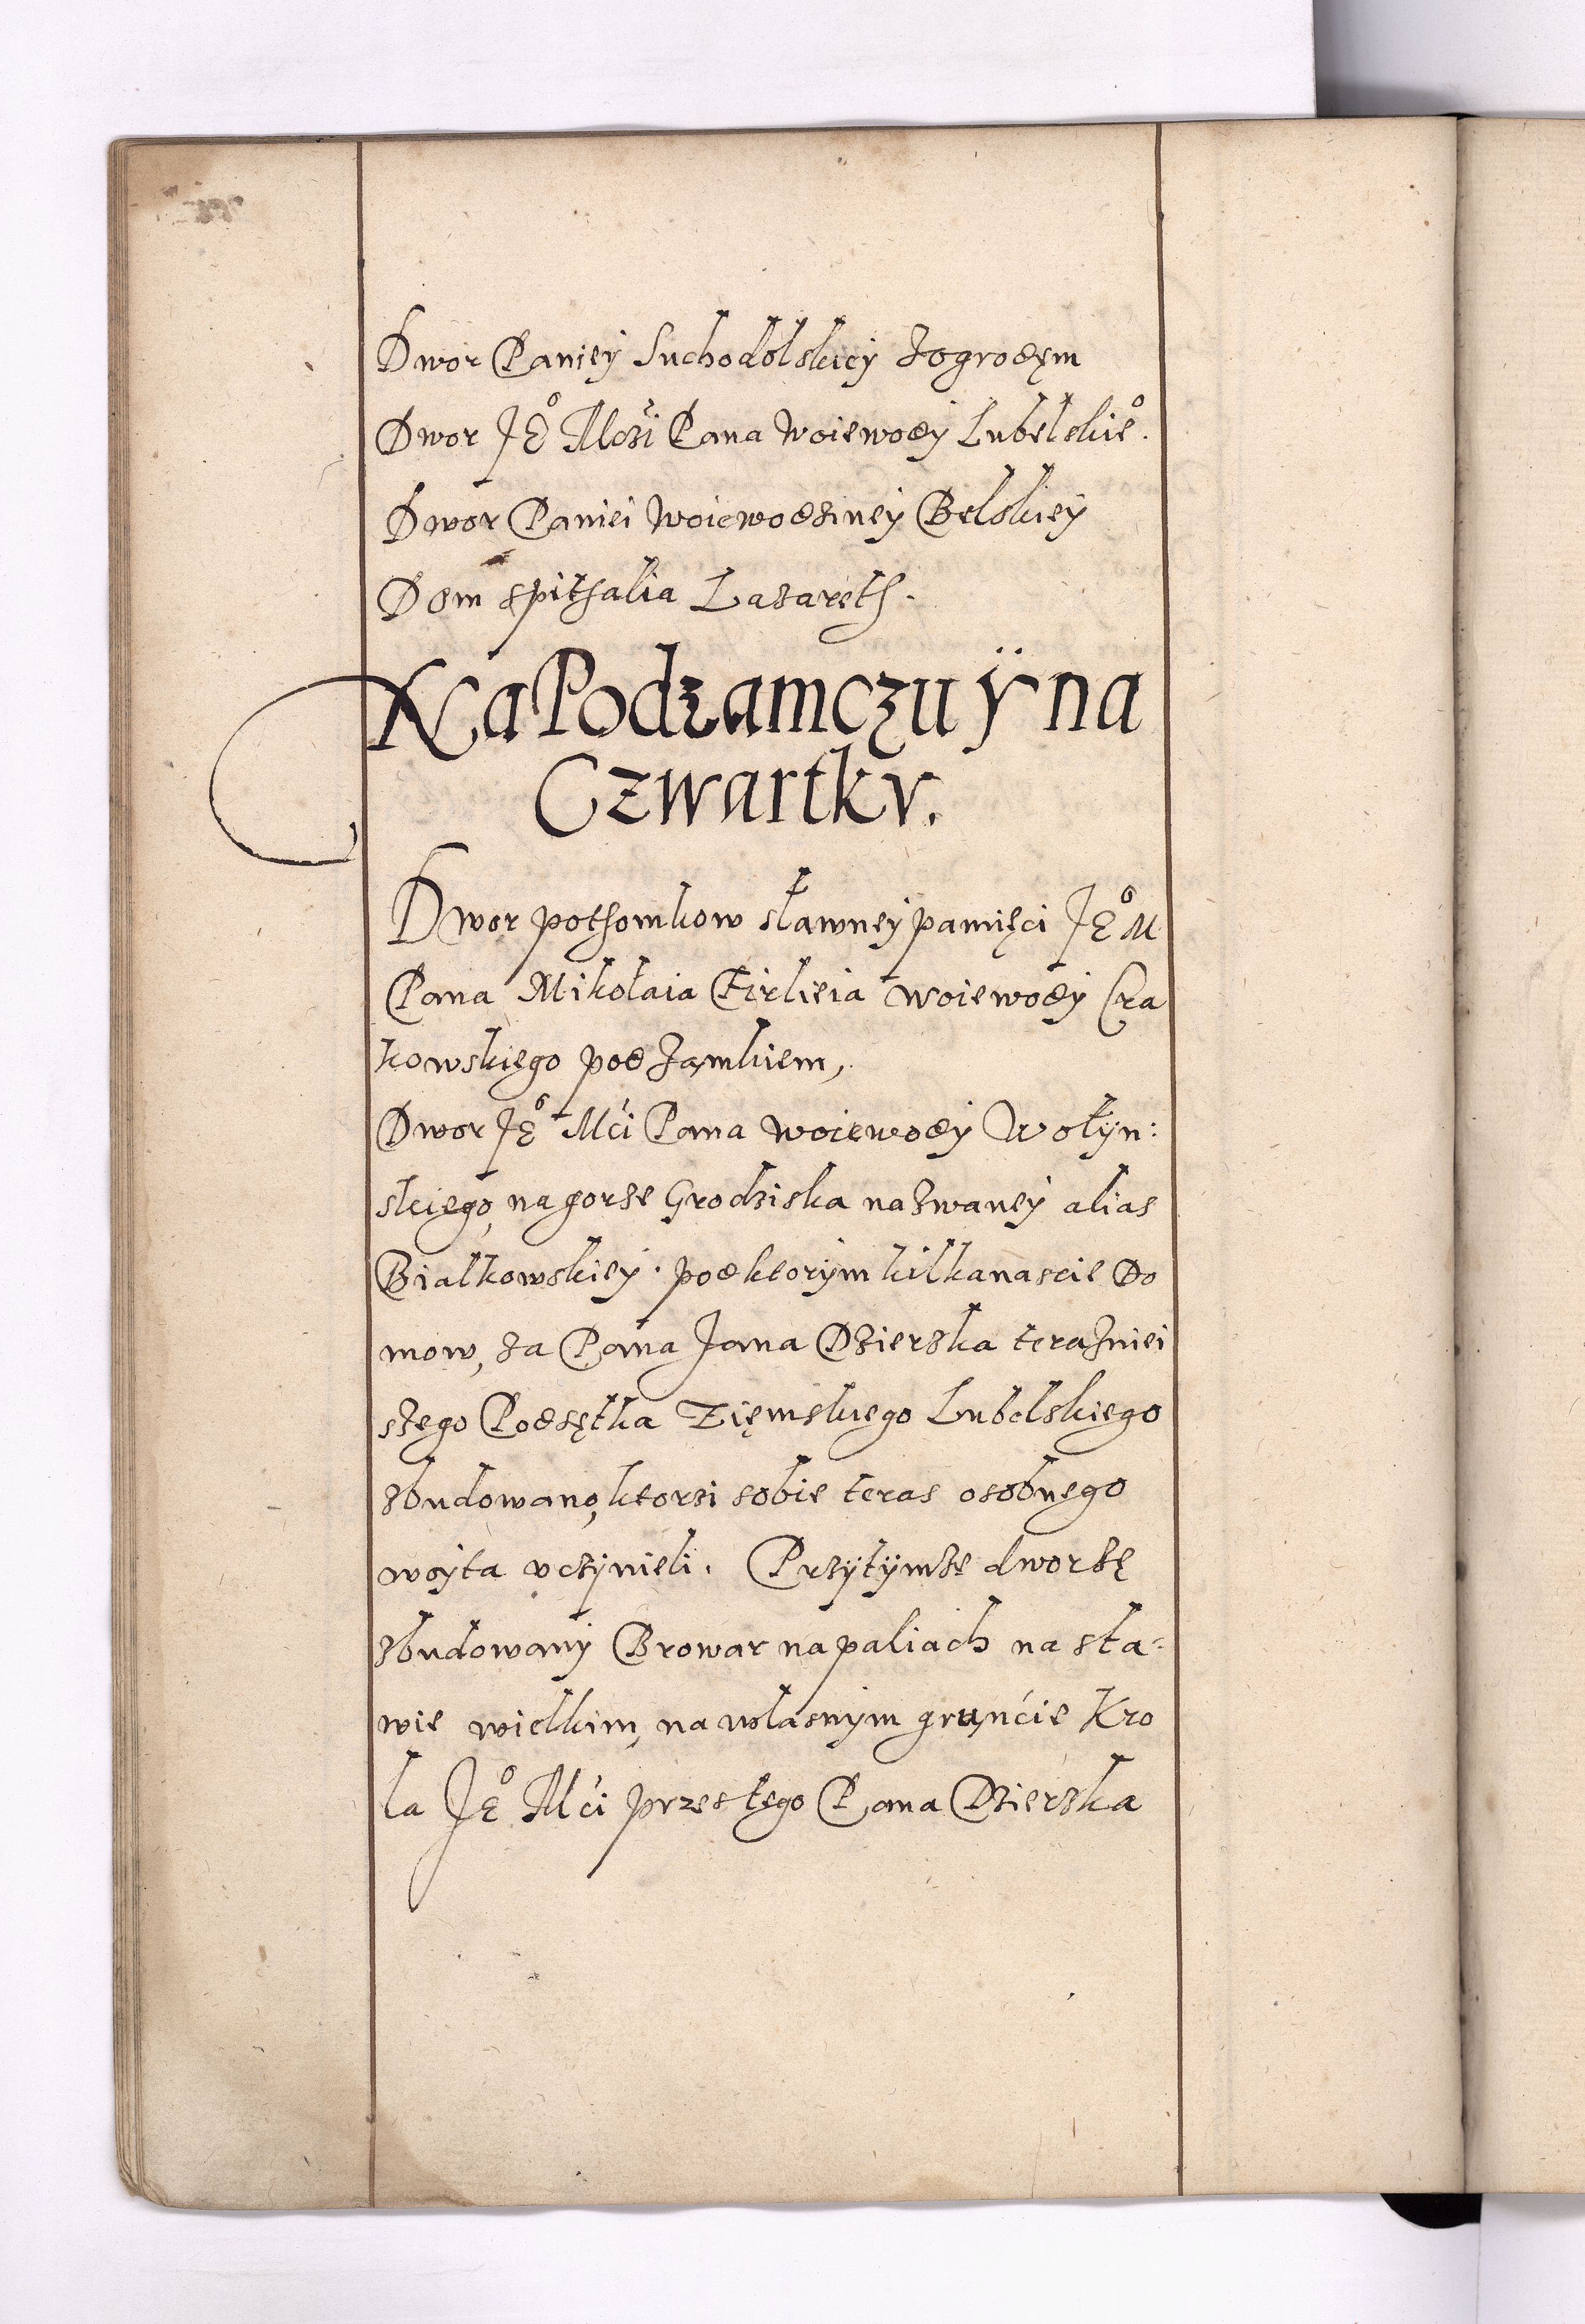 Dwor Paniey Suchodolskiey Zogrodęm
Dwor Jeº Mczi Pana Woiewody Lubelskieº.
Dwor Paniei Woiewodziney Belskiey
Dom spithalia Lazareth.
Na Podzamczu ÿ na
Czwartkv.
Dwor pothomkow sławney pamięci Jeº M
Pana Mikołaia Firlieia Woiewody Cra
kowskięgo pod Zamkiem,
Dwor Jeº Mći Pana Woiewody Wołyn:
skiego, na gorze Grodziska nazwaney alias
Białkowskiey. pod ktorym kilkanascie do
mow, za Pana Jana Dzierzka terazniei
szego Podsętka Zięmskiego Lubelskiego
zbudowano, ktorzi sobie teras osobnego
woyta vczynieli. Przytymze dworzę
zbudowany Browar na paliach na sta:
wie wielkim, na własnym grunćie Kro
la Jeº Mći przes tego Pana Dzierzka